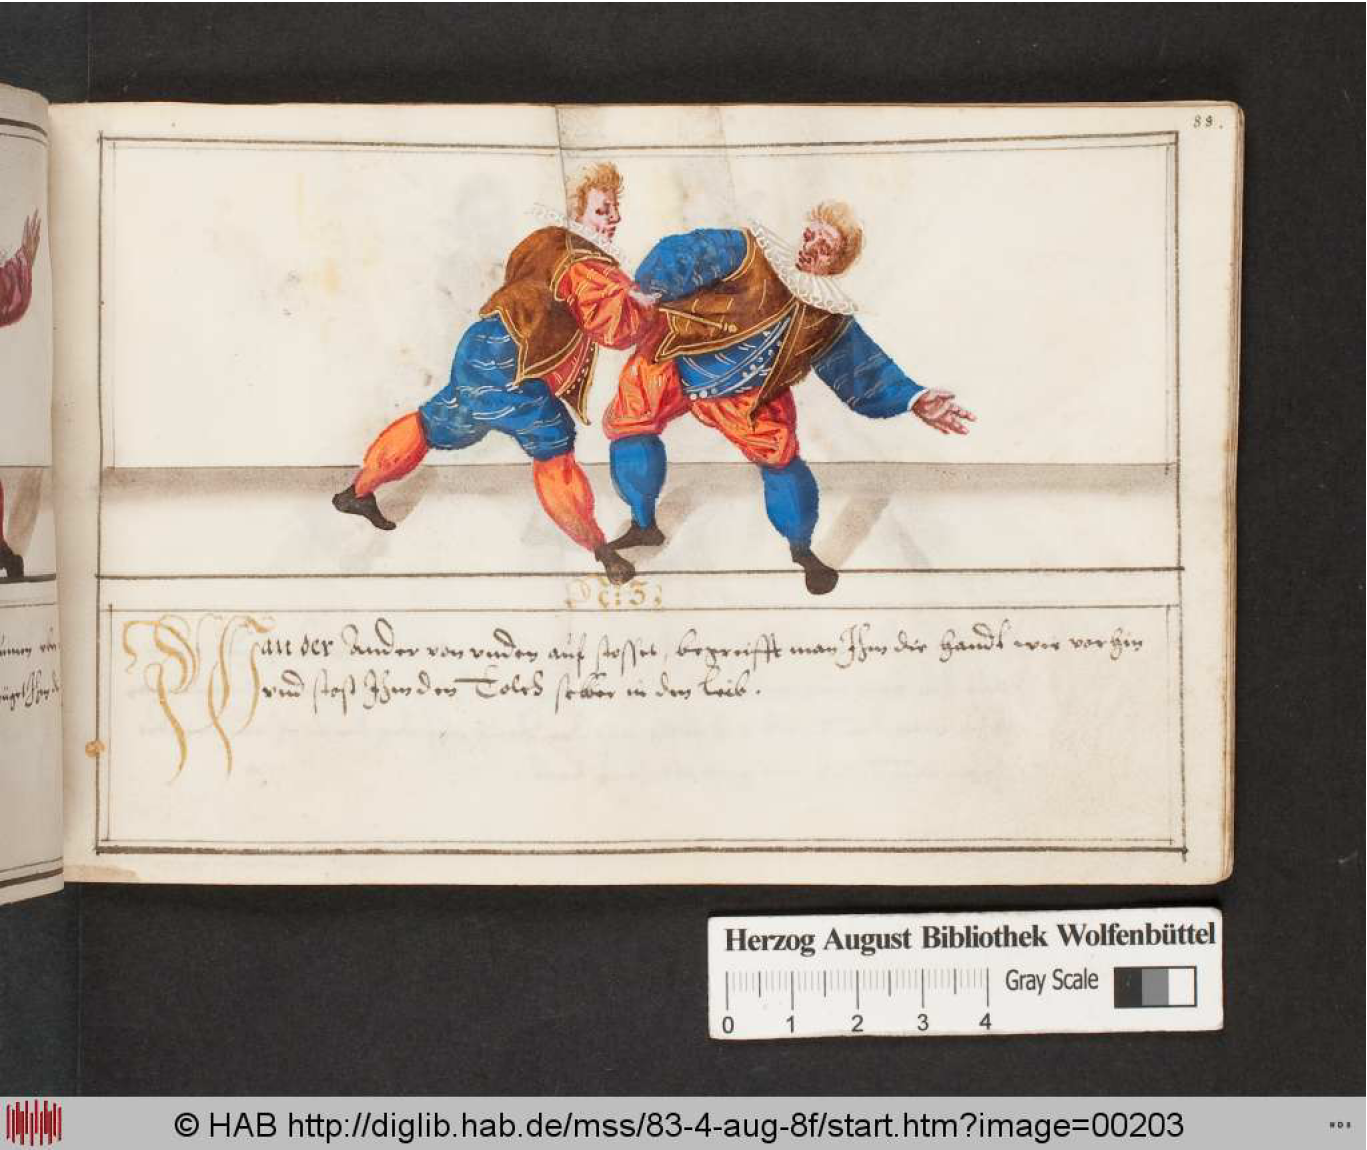 88.
C: 3:
Wan der Ander von vnden auf stosset, begreifft man Ihm die handt wie vorhin
vnd stost Ihm den Tolch selber in den leib.
Herzog August Bibliothek Wolfenbüttel
Gray Scale
0 1 2 3 4
© HAB http://diglib.hab.de/mss/83-4-aug-8f/start.htm?image=00203